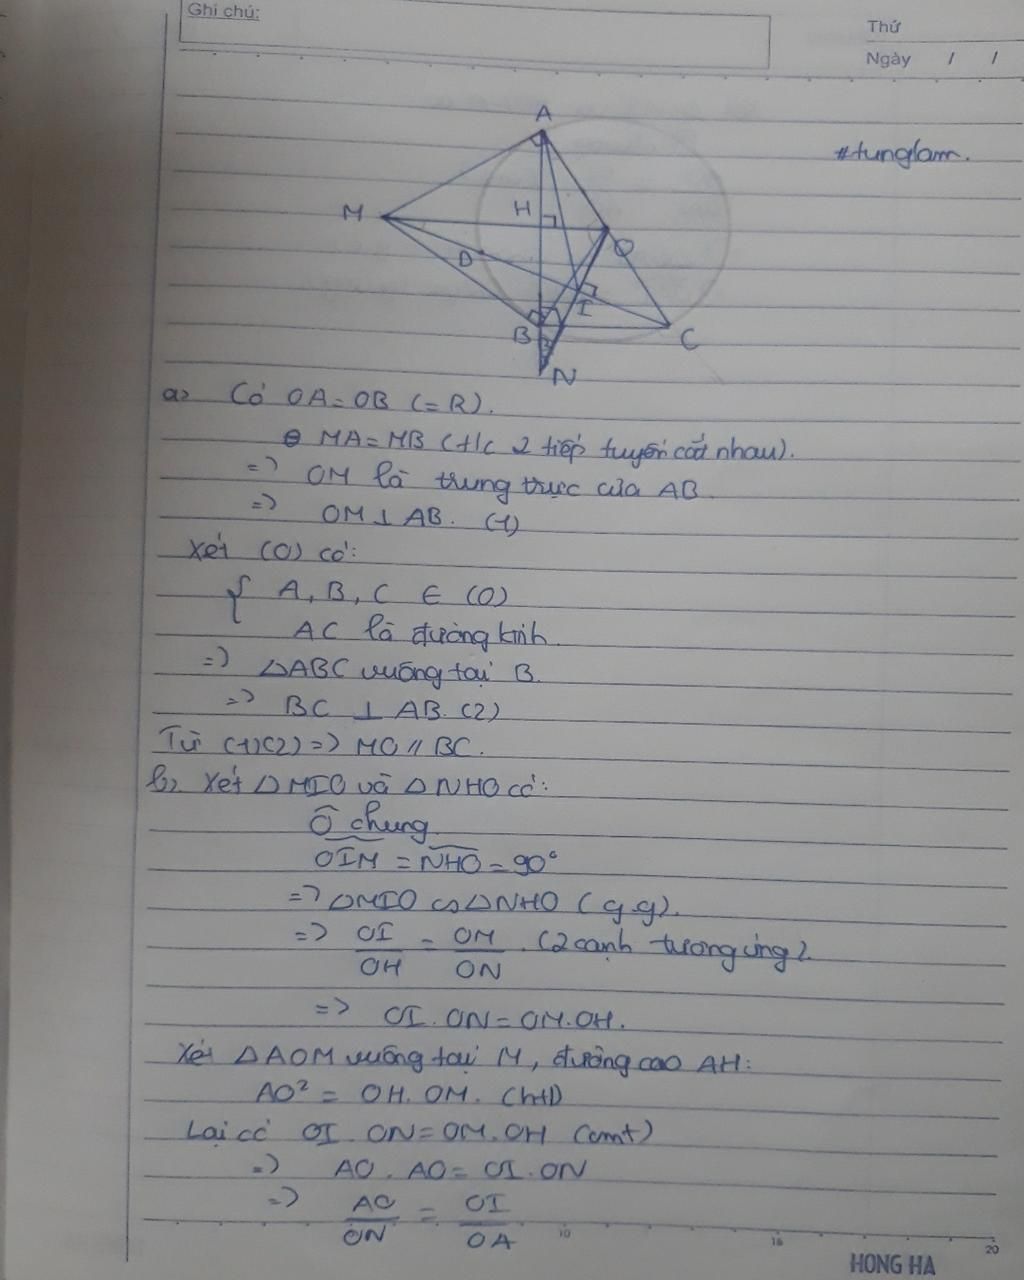 Ghi chú:
Thứ
Ngày / /
#tunglam.
A
M
H
O
D
I
B
C
N
a> Có OA = OB (= R).
MA = MB (t/c 2 tiếp tuyến cắt nhau).
=> OM là trung trực của AB
=> OM ⊥ AB. (1)
Xét (O) có:
{ A, B, C ∈ (O)
AC là đường kính
=> △ABC vuông tại B.
=> BC ⊥ AB. (2)
Từ (1)(2) => MO // BC.
b> Xét △MIO và △NHO có:
Ô chung
OIM = NHO = 90°
=> △MIO ∽ △NHO (g.g).
=> OI/OH = OM/ON. (2 cạnh tương ứng).
=> OI. ON = OM. OH.
Xét △AOM vuông tại M, đường cao AH:
AO² = OH. OM. (htl)
Lại có OI. ON = OM. OH (cmt)
=> AO. AO = OI. ON
=> AO/ON = OI/OA
10
15
20
HONG HA